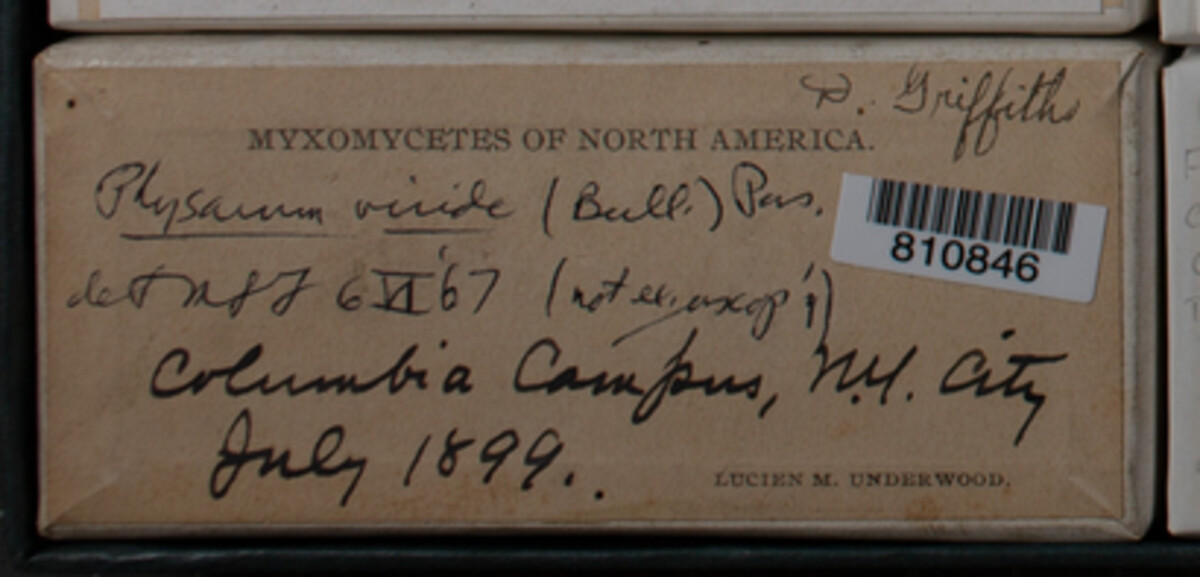 D. Griffiths
MYXOMYCETES OF NORTH AMERICA.
Physarum viride (Bull.) Pers.
810846
det 6 VI '67 (not
Columbia Campus, N.Y. City
July 1899.
LUCIEN M. UNDERWOOD.